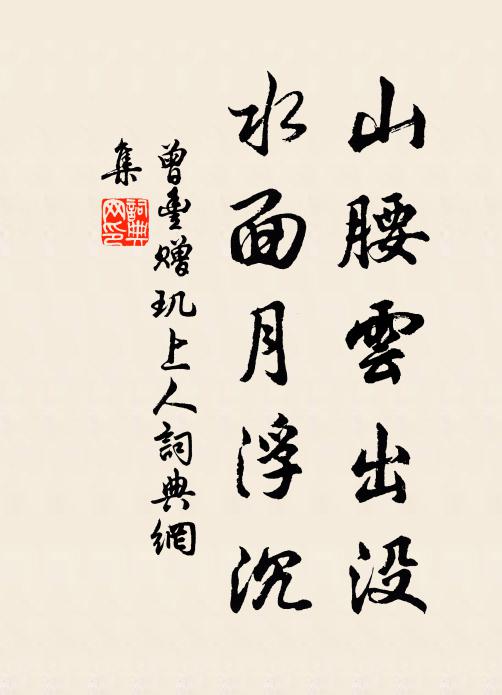 山腰雲出没
水面月浮沉
曾豐贈玑上人詞典網
集
詞典網印